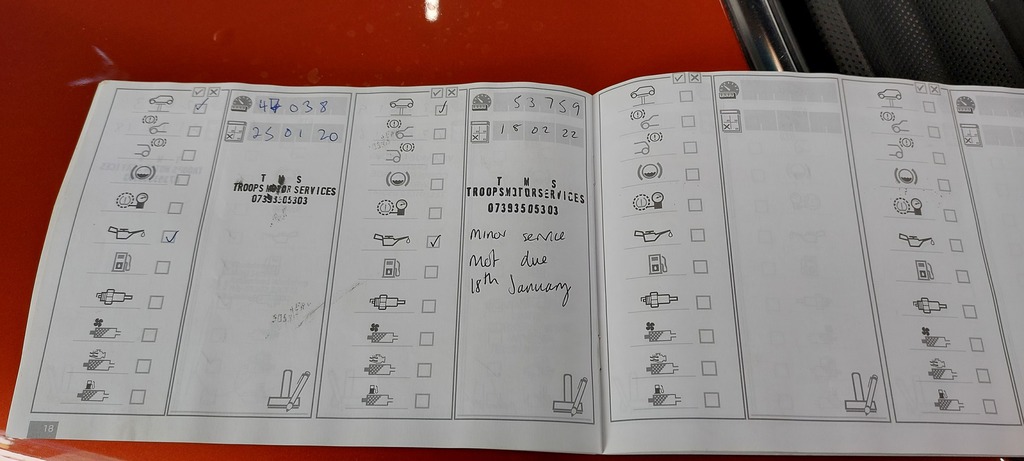 47 038
25 01 20
T M S
TROOPS MOTOR SERVICES
07393505303
53759
18 02 22
T M S
TROOPS MOTOR SERVICES
07393505303
Minor service
Mot due
18th January
18